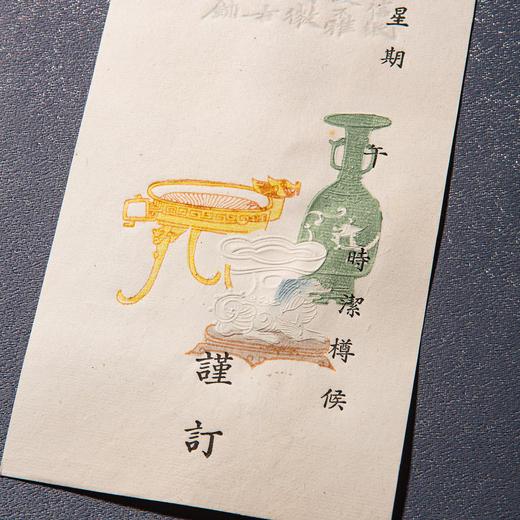 星期　午　時潔樽候
謹訂